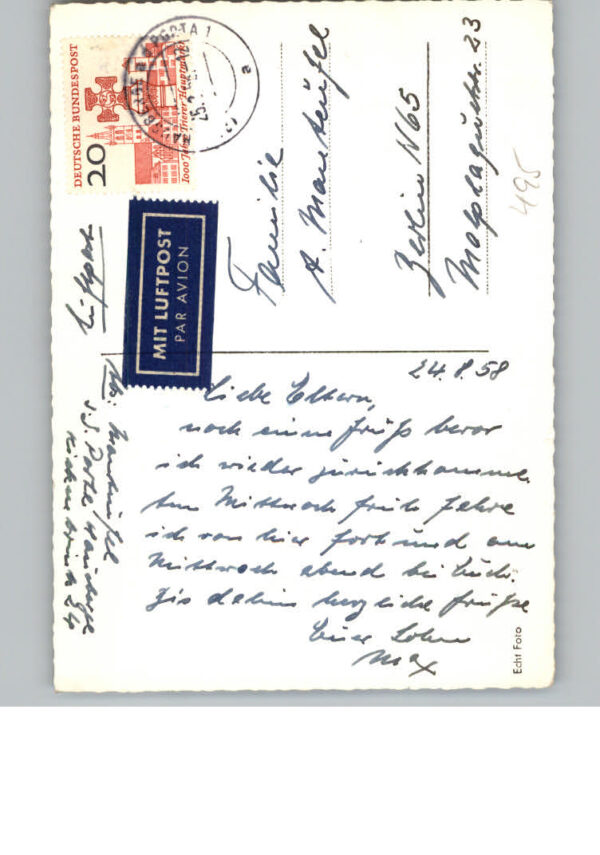 DEUTSCHE BUNDESPOST
20
1000 Jahre Trierer Hauptmarkt
PORTA 1
a
MIT LUFTPOST
PAR AVION
Familie
A. Manteufel
Berlin N65
Malplaquetstr. 23
495
24.8.58
Liebe Eltern,
noch einen Gruß bevor
ich wieder zurückkomme
Am Mittwoch früh fahre
ich von hier fort und am
Mittwoch abend bei Euch.
Bis dahin herzliche Grüße
Euer Sohn
Max
Abs: Manteufel
Echt Foto